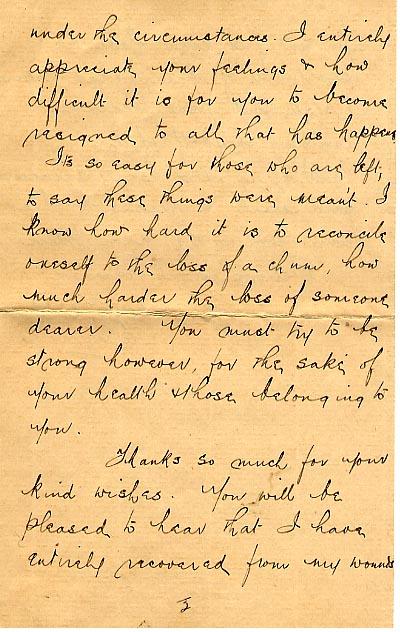 under the circumstances. I entirely
appreciate your feelings & how
difficult it is for you to become
resigned to all that has happen
Its so easy for those who are left,
to say these things were meant. I
know how hard it is to reconcile
oneself to the loss of a chum, how
much harder the loss of someone
dearer. You must try to be
strong however, for the sake of
your health & those belonging to
you.
Thanks so much for your
kind wishes. You will be
pleased to hear that I have
entirely recovered from my wounds